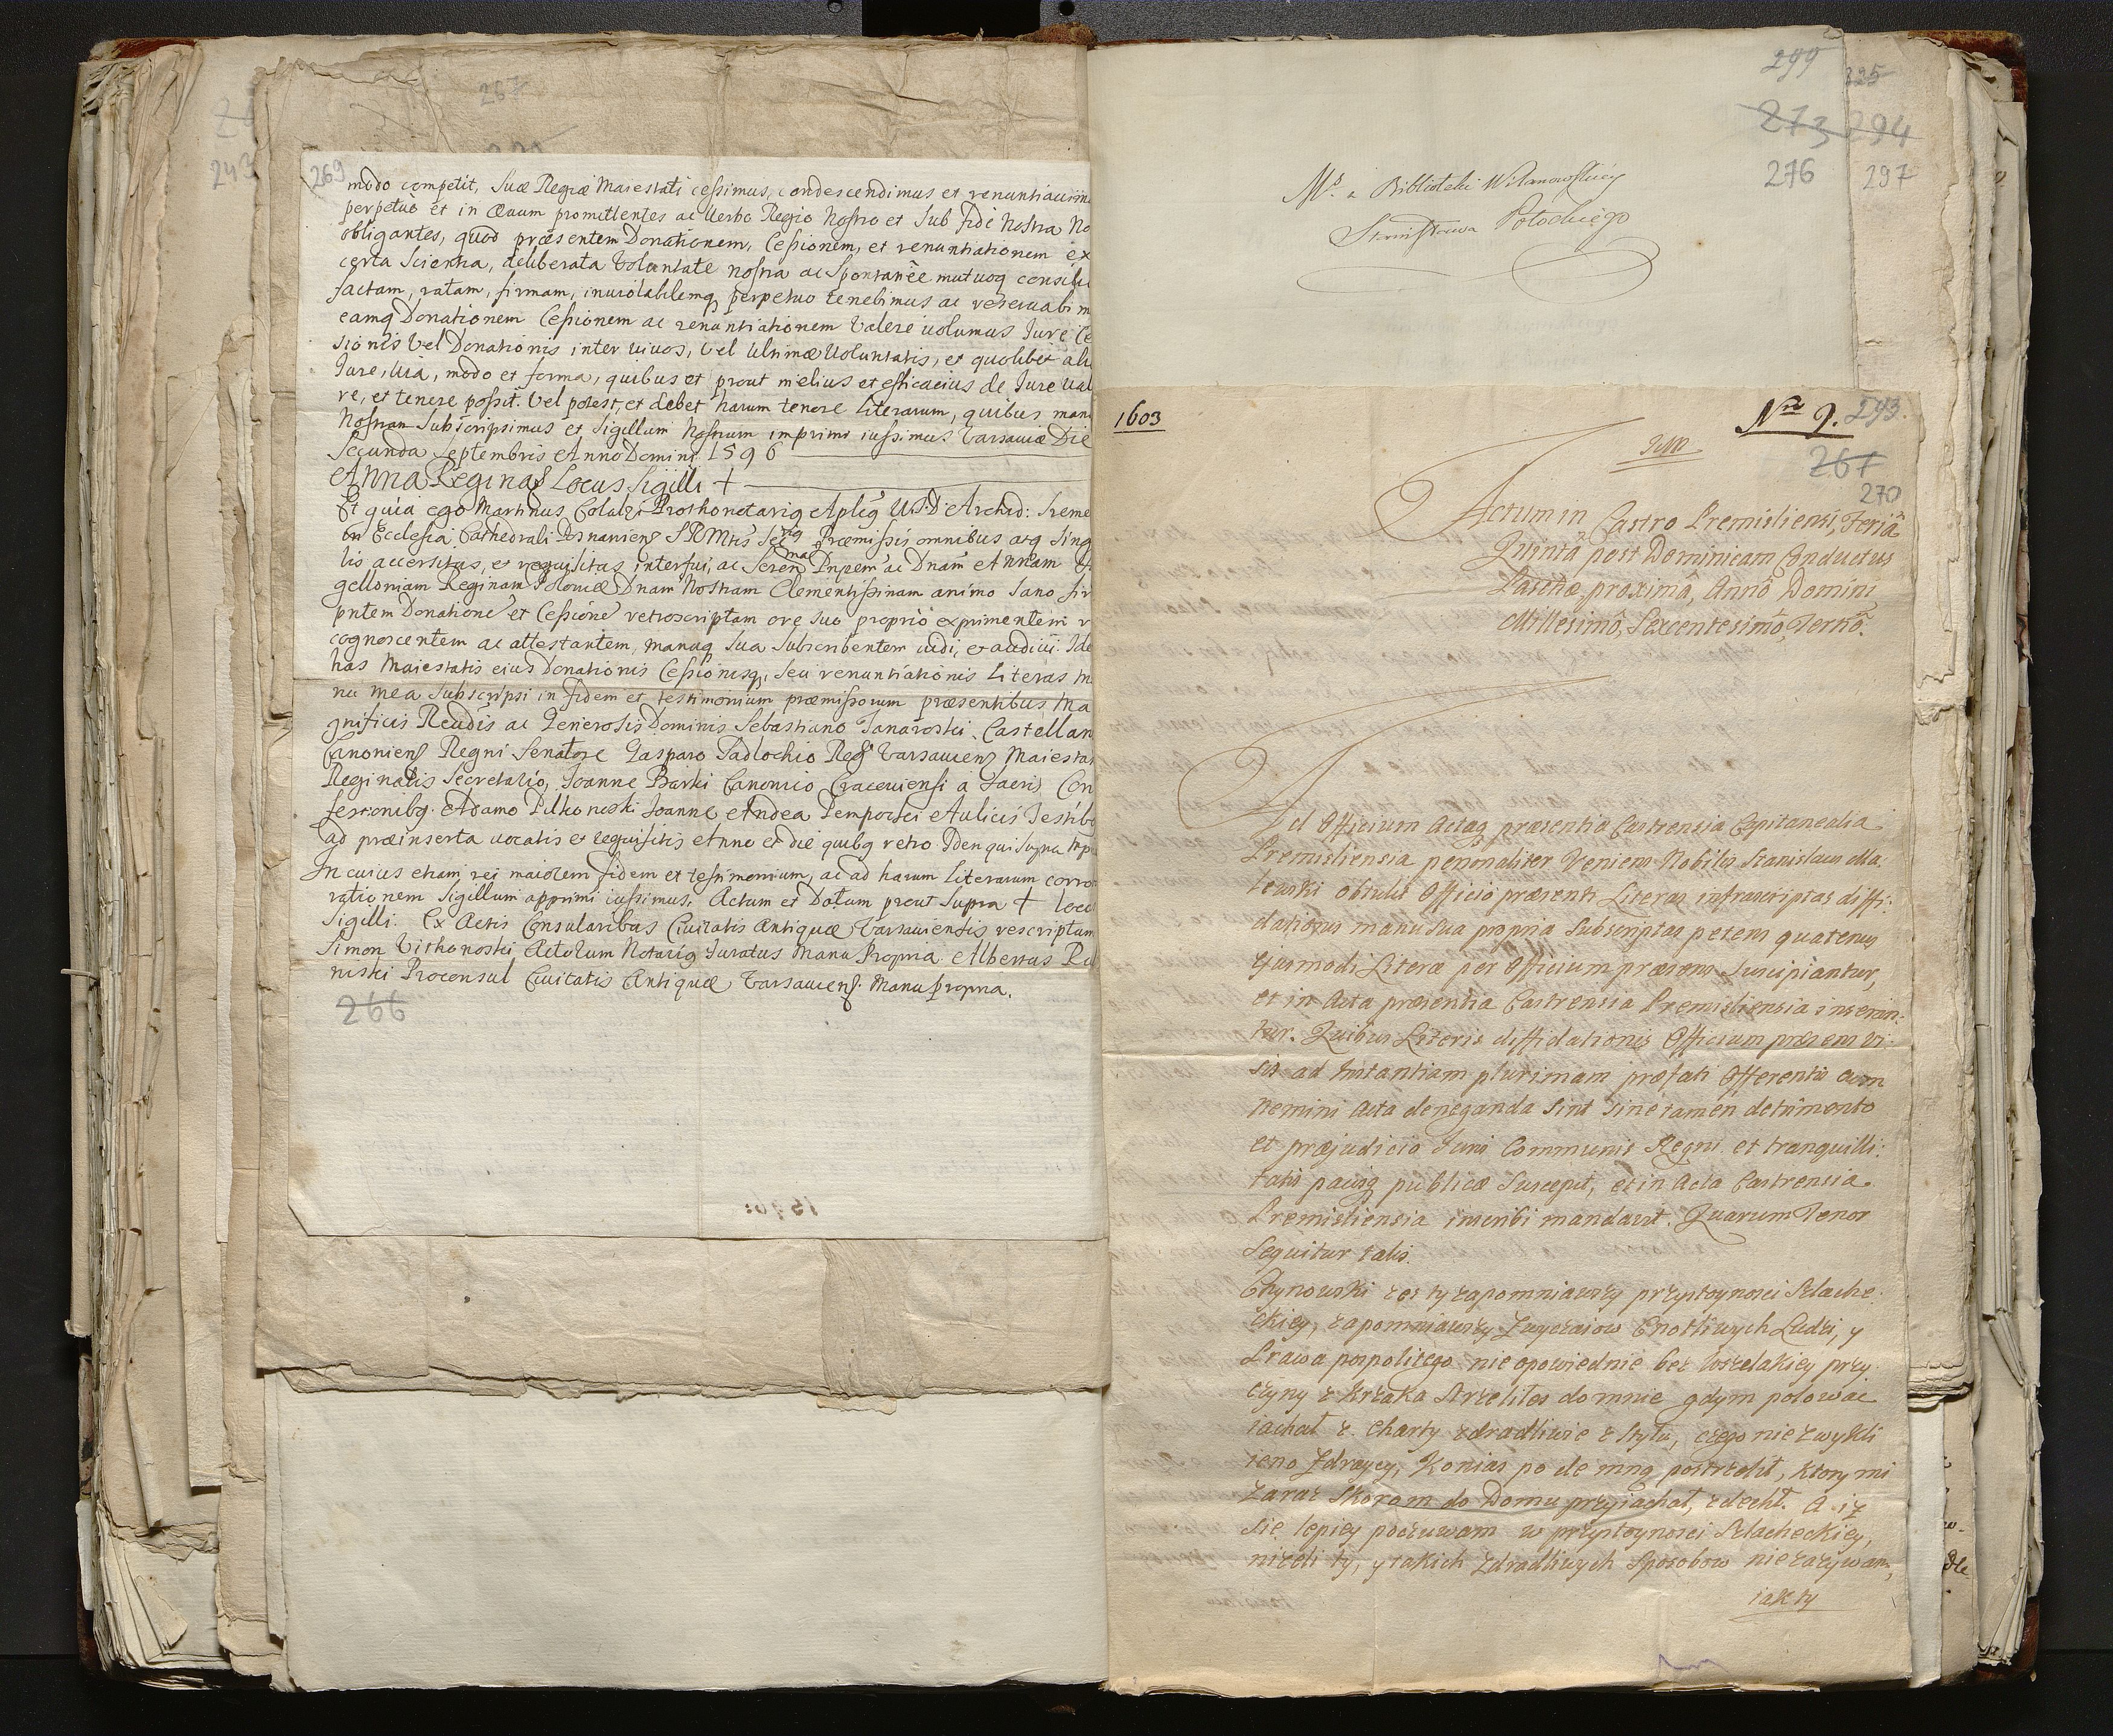 267
243
269
modo competit, Suæ Regiæ Maiestati cessimus, condescendimus et renuntiauim
perpetuò et in æuum promittentes ac Verbo Regio Nostro et Sub fide Nostra No
obligantes, quod præsentem Donationem, Cessionem, et renuntiationem ex
certa Scientia, deliberata Voluntate nostra ac Spontanèe mutuoq consili
factam, ratam, firmam, inuiolabilemq perpetuo tenebimus ac
eamq Donationem Cessionem ac renuntiationem Valere uolumus Jure Ce
sionis Vel Donationis inter uiuos, Vel Ultimæ Uoluntatis, et quolibet ali
Jure, uia, modo et forma, quibus et prout melius et efficacius de Jure Val
re, et tenere possit. Vel potest, et debet harum tenore Literarum, quibus man
Nostram Subscripsimus et Sigillum Nostrum imprimi iussimus Varsauiæ Die
Secunda Septembris Anno Domini 1596
Anna Regina Locus Sigilli +
Et quia ego Martinus Prothonotarig Aplicg U.J.D. Archid: Sreme
in Ecclesia Cathedrali Posnaniens S R Mtis Præmissis omnibus atq Sing
lis accersitus, et requisitus interfui, ac Seren ma Pnpem ac Dnam Annam
gelloniam Reginam Poloniæ Dnam Nostram Clementissinam animo Sano
pntem Donatione et Cessione retroscriptam ore Suo proprio exprimentem r
cognoscentem ac attestantem, manuq Sua Subscribentem uidi, et audiui. Ide
has Maiestatis eius Donationis Cessionisq, Seu renuntiationis Literas m
nu mea Subscripsi in fidem et testimonium præmissorum præsentibus Ma
gnificis Reudis ac Generosis Dominis Sebastiano Castellan
Regni Senatore Gasparo Varsauiens Maiestat
Reginalis Secretario, Joanne Barski Canonico Cracouiensi a Sacris Con
fessionibg. Adamo Joanne Aulicis Testib
ad præinserta uocatis et requisitis Anno et die quibg retro Iden qui Supra
In cuius etiam rei maiorem fidem et testimonium, ac ad harum Literarum corro
rationem Sigillum apprimi iussimus. Actum et Datum prout Supra + Loc
Sigilli. Ex Actis Consularibus Ciuitatis Antiquæ Varsauiensis rescriptum
Simon Actorum Notarig Juratus Manu Propria Albertus
Proconsul Ciuitatis Antiquæ Varsauiens. Manu Propria.
266
299
325
273 294
276 297
Ms. z Biblioteki Wilanowskiéy
Stanisława Potockiego
1603
Nro 9. 293.
267
270
Actum in Castro Premisliensi, Feriâ
Quintâ post Dominicam Conductus
Paschæ proximâ, Annô Domini
Millesimô, Sexcentesimô, Tertiô.
Ad Officium Actaq præsentia Castrensia Capitanealia
Premisliensia personaliter Veniens Nobilis Stanislaus Ma:
lewski obtulit Officio præsenti Literas infrascriptas diffi:
dationis manu Sua propria Subscriptas petens quatenus
ejusmodi Literæ per Officium præsens Suscipiantur,
et in Acta præsentia Castrensia Premisliensia inseran:
tur. Quibus Literis diffidationis Officium præsens vi:
sis ad Instantiam plurimam præfati Offerentis cum
Nemini Acta deneganda Sint sine tamen detrimento
et præjudicio Juris Communis Regni et tranquilli:
tatis pacisq publicæ Suscepit, et in Acta Castrensia
Premisliensia inscribi mandavit. Quarum Tenor
Sequitur talis.
zes ty zapomniawszy przystoynosci Szlache:
ckiey, zapomniawszy Zwyczaiow Cnotliwych Ludzi, y
Prawa pospolitego nie opowiednie bez wszelakiey przy:
czyny z krzaka Strzeliłes do mnie gdym polowac
iachał z Charty zdradliwie z tyłu, czego nie zwykli
ieno Zdraycy, Konias po de mną postrzelił, ktory mi
zaraz Skorom do Domu przyiachał, zdechł. A iż
Sie lepiey poczuwam w przystoynosci Szlacheckiey,
niżeli ty, y takich zdradliwych Sposobow nie zażywam,
iak ty